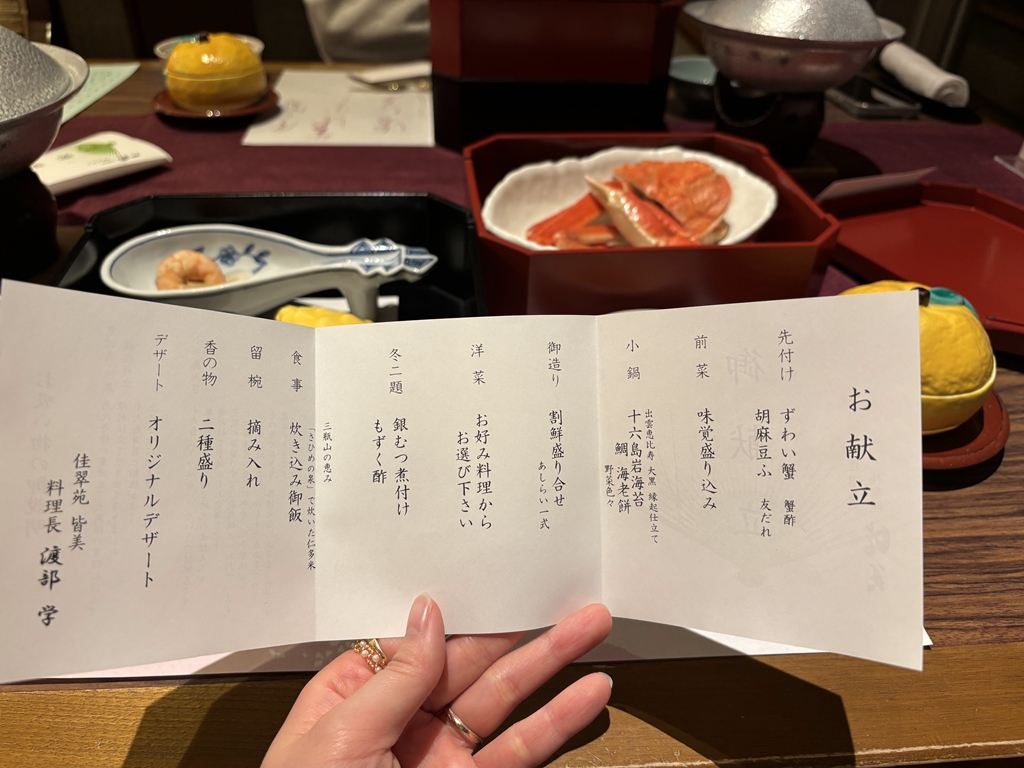 お献立
先付け
ずわい蟹　蟹酢
胡麻豆ふ　友だれ
前菜
味覚盛り込み
小鍋
出雲恵比寿　大黒　縁起仕立て
十六島岩海苔
鯛　海老餅
野菜色々
御造り
割鮮盛り合せ
あしらい一式
洋菜
お好み料理から
お選び下さい
冬二題
銀むつ煮付け
もずく酢
三瓶山の恵み
「さひめの泉」で炊いた仁多米
食事　炊き込み御飯
留椀　摘み入れ
香の物　二種盛り
デザート　オリジナルデザート
佳翠苑　皆美
料理長　渡部　学